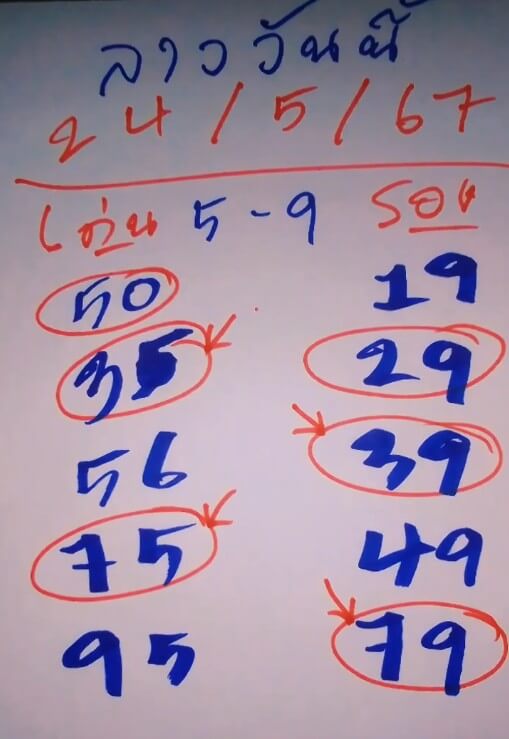 ลาววันนี้
24/5/67
เด่น 5-9 รอง
50 19
35 29
56 39
75 49
95 79